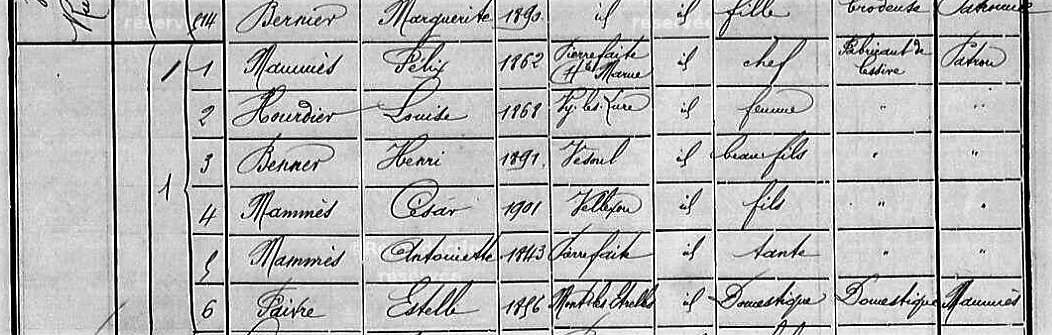 14 Bernier Marguerite 1890 id id fille brodeuse Patronne
1 1 Mammès Félix 1862 Pierrefaite Hte Marne id chef Fabricant de lessive Patron
2 Hourdier Louise 1868 Vy-les-Lure id femme " "
3 Berner Henri 1891 Vesoul id beau fils " "
1 4 Mammès César 1901 Vellexon id fils " "
5 Mammès Antoinette 1843 Pierrefaite id tante " "
6 Faivre Estelle 1856 Mont les Etrelles id Domestique Domestique Mammès